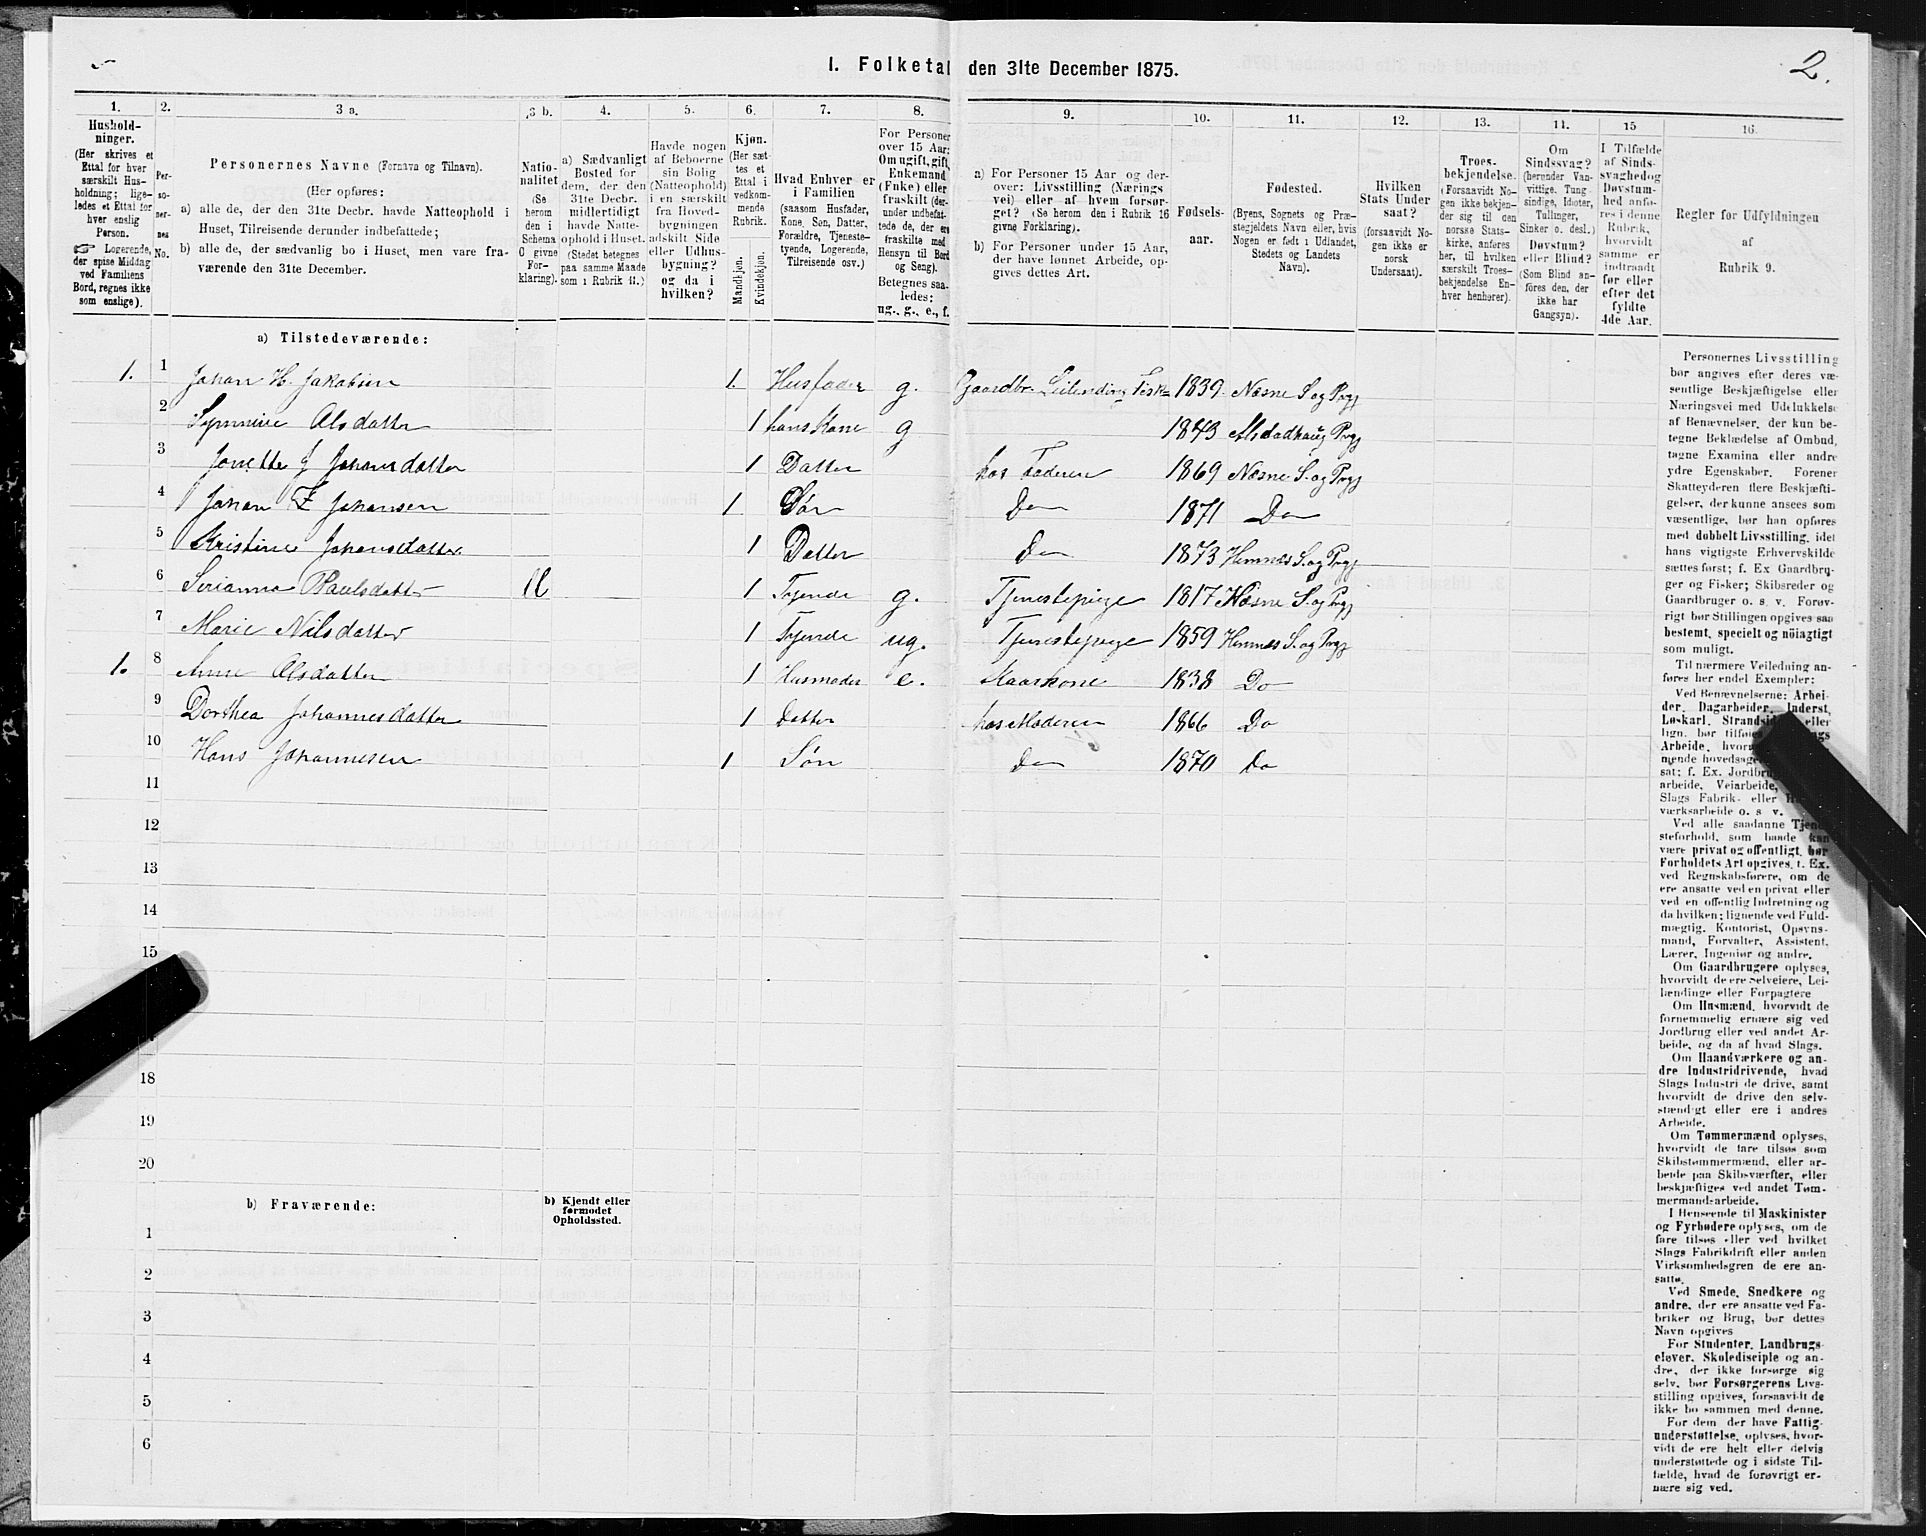 I. Folketal den 31te December 1875.
2.
1.
Hushold-
ninger.
(Her skrives et
Ettal for hver
særskilt Hus-
holdning; lige-
ledes et Ettal for
hver enslig
Person.
Logerende,
der spise Middag
ved Familiens
Bord, regnes ikke
som enslige).
2.
Per-
so-
ner-
nes
No.
3 a.
Personernes Navne (Fornavn og Tilnavn).
(Her opføres:
a) alle de, der den 31te Decbr. havde Natteophold i
Huset, Tilreisende derunder indbefattede;
b) alle de, der sædvanlig bo i Huset, men vare fra-
værende den 31te December.
3 b.
Natio-
nalitet
(Se
herom
den i
Schema
6 givne
For-
klaring).
4.
a) Sædvanligt
Bosted for
dem, der den
31te Decbr.
midlertidigt
havde Natte-
ophold i Huset.
(Stedet betegnes
paa samme Maade
som i Rubrik 11.)
5.
Havde nogen
af Beboerne
sin Bolig
(Natteophold)
i en særskilt
fra Hoved-
bygningen
adskilt Side
eller Udhus-
bygning?
og da i
hvilken?
6.
Kjøn.
(Her sæt-
tes et
Ettal i
vedkom-
mende
Rubrik.
Mandkjøn.
Kvindekjøn.
7.
Hvad Enhver er
i Familien
(saasom Husfader,
Kone, Søn, Datter,
Forældre, Tjeneste-
tyende, Logerende,
Tilreisende osv.)
8.
For Personer
over 15 Aar:
Om ugift, gift,
Enkemand
(Enke) eller
fraskilt (der-
under indbefat-
tede de, der ere
fraskilte med
Hensyn til Bord
og Seng).
Betegnes saa-
ledes:
ug., g., e., f.
9.
a) For Personer 15 Aar og der-
over: Livsstilling (Nærings
vei) eller af hvem forsør-
get? (Se herom den i Rubrik 16
givne Forklaring).
b) For Personer under 15 Aar,
der have lønnet Arbeide, op-
gives dettes Art.
10.
Fødsels-
aar.
11.
Fødested.
(Byens, Sognets og Præ-
stegjeldets Navn eller, hvis
Nogen er født i Udlandet,
Stedets og Landets
Navn).
12.
Hvilken
Stats Under
saat?
(forsaavidt No-
gen ikke er
norsk
Undersaat).
13.
Troes-
bekjendelse.
(Forsaavidt No-
gen ikke bekjen-
der sig til den
norske Stats-
kirke, anføres
her, til hvilken
særskilt Troes-
bekjendelse En-
hver henhører).
14.
Om
Sindssvag?
(herunder Van-
vittige, Tung-
sindige, Idioter,
Tullinger,
Sinker o. desl.)
Døvstum?
eller Blind?
(Som Blind an-
føres den, der
ikke har
Gangsyn).
15
I Tilfælde
af Sinds-
svaghed og
Døvstum-
hed anfø-
res i denne
Rubrik,
hvorvidt
samme er
indtraadt
før eller
efter det
fyldte
4de Aar.
16.
Regler for Udfyldningen
af
Rubrik 9.
a) Tilstedeværende:
1. 1 Johan H. Jakobsen 1. Husfader g. Gaardbr. Leilending Fisk= 1839. Næsne S. og Prgj
2 Synnive Olsdatter 1 hans Kone g 1843 Alstadhaug Prgj
3 Jonette J Johansdatter 1 Datter hos Faderen 1869 Næsne S. og Prgj
4 Johan Z Johansen 1 Søn Do 1871 Do
5 Kristine Johansdatter 1 Datter Do 1873 Hemnæs S. og Prgj
6 Serianna Paulsdatter 1 Tyende g. Tjenestepige 1817 Næsne S. og Prgj
7 Marie Nilsdatter 1 Tyende ug. Tjenestepige 1859 Hemnæs S. og Prgj
1. 8 Anne Olsdatter 1 Husmoder e. Kaarkone 1838 Do
9 Dorthea Johannesdatter 1 Datter hos Moderen 1866 Do
10 Hans Johannesen 1 Søn Do 1870 Do
11
12
13
14
15
18
19
20
b) Fraværende:
b) Kjendt eller
formodet
Opholdssted.
1
2
3
4
5
6
Personernes Livsstilling
bør angives efter deres væ-
sentlige Beskjæftigelse eller
Næringsvei med Udelukkelse
af Benævnelser, der kun be-
tegne Beklædelse af Ombud,
tagne Examina eller andre
ydre Egenskaber. Forener
Skatteyderen flere Beskjæfti-
gelser, der kunne ansees som
væsentlige, bør han opføres
med dobbelt Livsstilling, idet
hans vigtigste Erhvervskilde
sættes først; f. Ex Gaardbru-
ger og Fisker; Skibsreder og
Gaardbruger o. s. v. Forøv-
rigt bør Stillingen opgives saa
bestemt, specielt og nøiagtigt
som muligt.
Til nærmere Veiledning an-
føres her endel Exempler:
Ved Benævnelserne: Arbei-
der, Dagarbeider, Inderst,
Løskarl, Strandsidder eller
lign. bør tilføies
Arbeide, hvor
nende hovedsage
sat; f. Ex. Jordbr
arbeide, Veiarbeide,
Slags Fabrik- eller
værksarbeide o. s v.
Ved alle saadanne Tjene-
steforhold, som baade kan
være privat og offentligt, bør
Forholdets Art opgives, t. Ex.
ved Regnskabsførere, om de
ere ansatte ved en privat eller
ved en offentlig Indretning og
da hvilken; lignende ved Fuld-
mægtig, Kontorist, Opsyns-
mand, Forvalter, Assistent,
Lærer, Ingeniør og andre.
Om Gaardbrugere oplyses,
hvorvidt de ere Selveiere, Lei-
lændinge eller Forpagtere
Om Husmænd, hvorvidt de
fornemmelig ernære sig ved
Jordbrug eller ved andet Ar-
beide, og da af hvad Slags.
Om Haandværkere og an-
dre Industridrivende, hvad
Slags Industri de drive, samt
hvorvidt de drive den selv-
stændigt eller ere i andres
Arbeide.
Om Tømmermænd oplyses,
hvorvidt de fare tilsøs som
Skibstømmermænd, eller ar-
beide paa Skibsværfter, eller
beskjæftiges ved andet Tøm-
mermandsarbeide.
I Henseende til Maskinister
og Fyrbødere oplyses, om de
fare tilsøs eller ved hvilket
Slags Fabrikdrift eller anden
Virksomhedsgren de ere an-
satte.
Ved Smede, Snedkere og
andre, der ere ansatte ved Fa-
briker og Brug, bør dettes
Navn opgives
For Studenter, Landbrugs-
elever, Skoledisciple og an-
dre, der ikke forsørge sig
selv, bør Forsørgerens Livs-
stilling opgives, forsaavidt de
ikke bo sammen med denne.
For dem, der have Fattig-
understøttelse, oplyses, hvor-
vidt de ere helt eller delvis
understøttede og i sidste Til-
fælde, hvad de forøvrigt er-
nære sig ved.